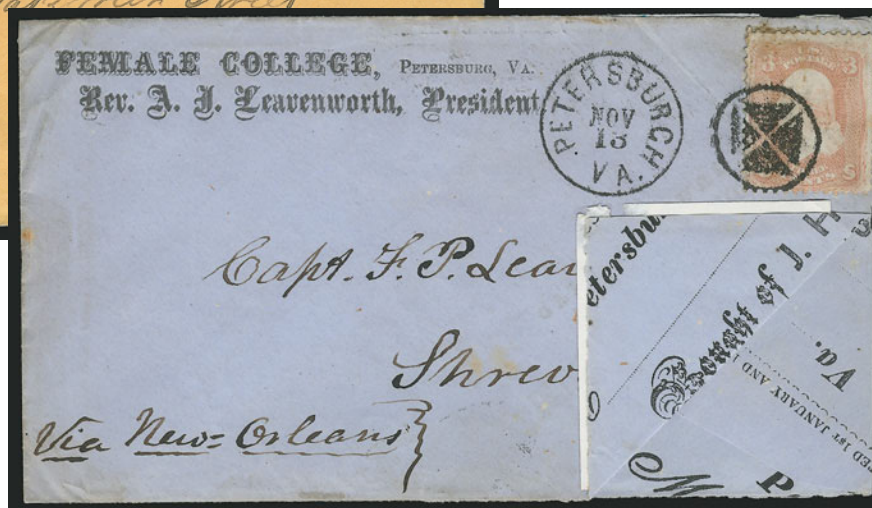 Street
FEMALE COLLEGE, PETERSBURG, VA.
Rev. A. J. Leavenworth, President
PETERSBURGH
NOV
13
VA.
3 U.S. POSTAGE 3
Capt. F. P. Leav
Shrev
Via New=Orleans
etersbu
Bought of J. H
Va.
1ST JANUARY AND
M
P